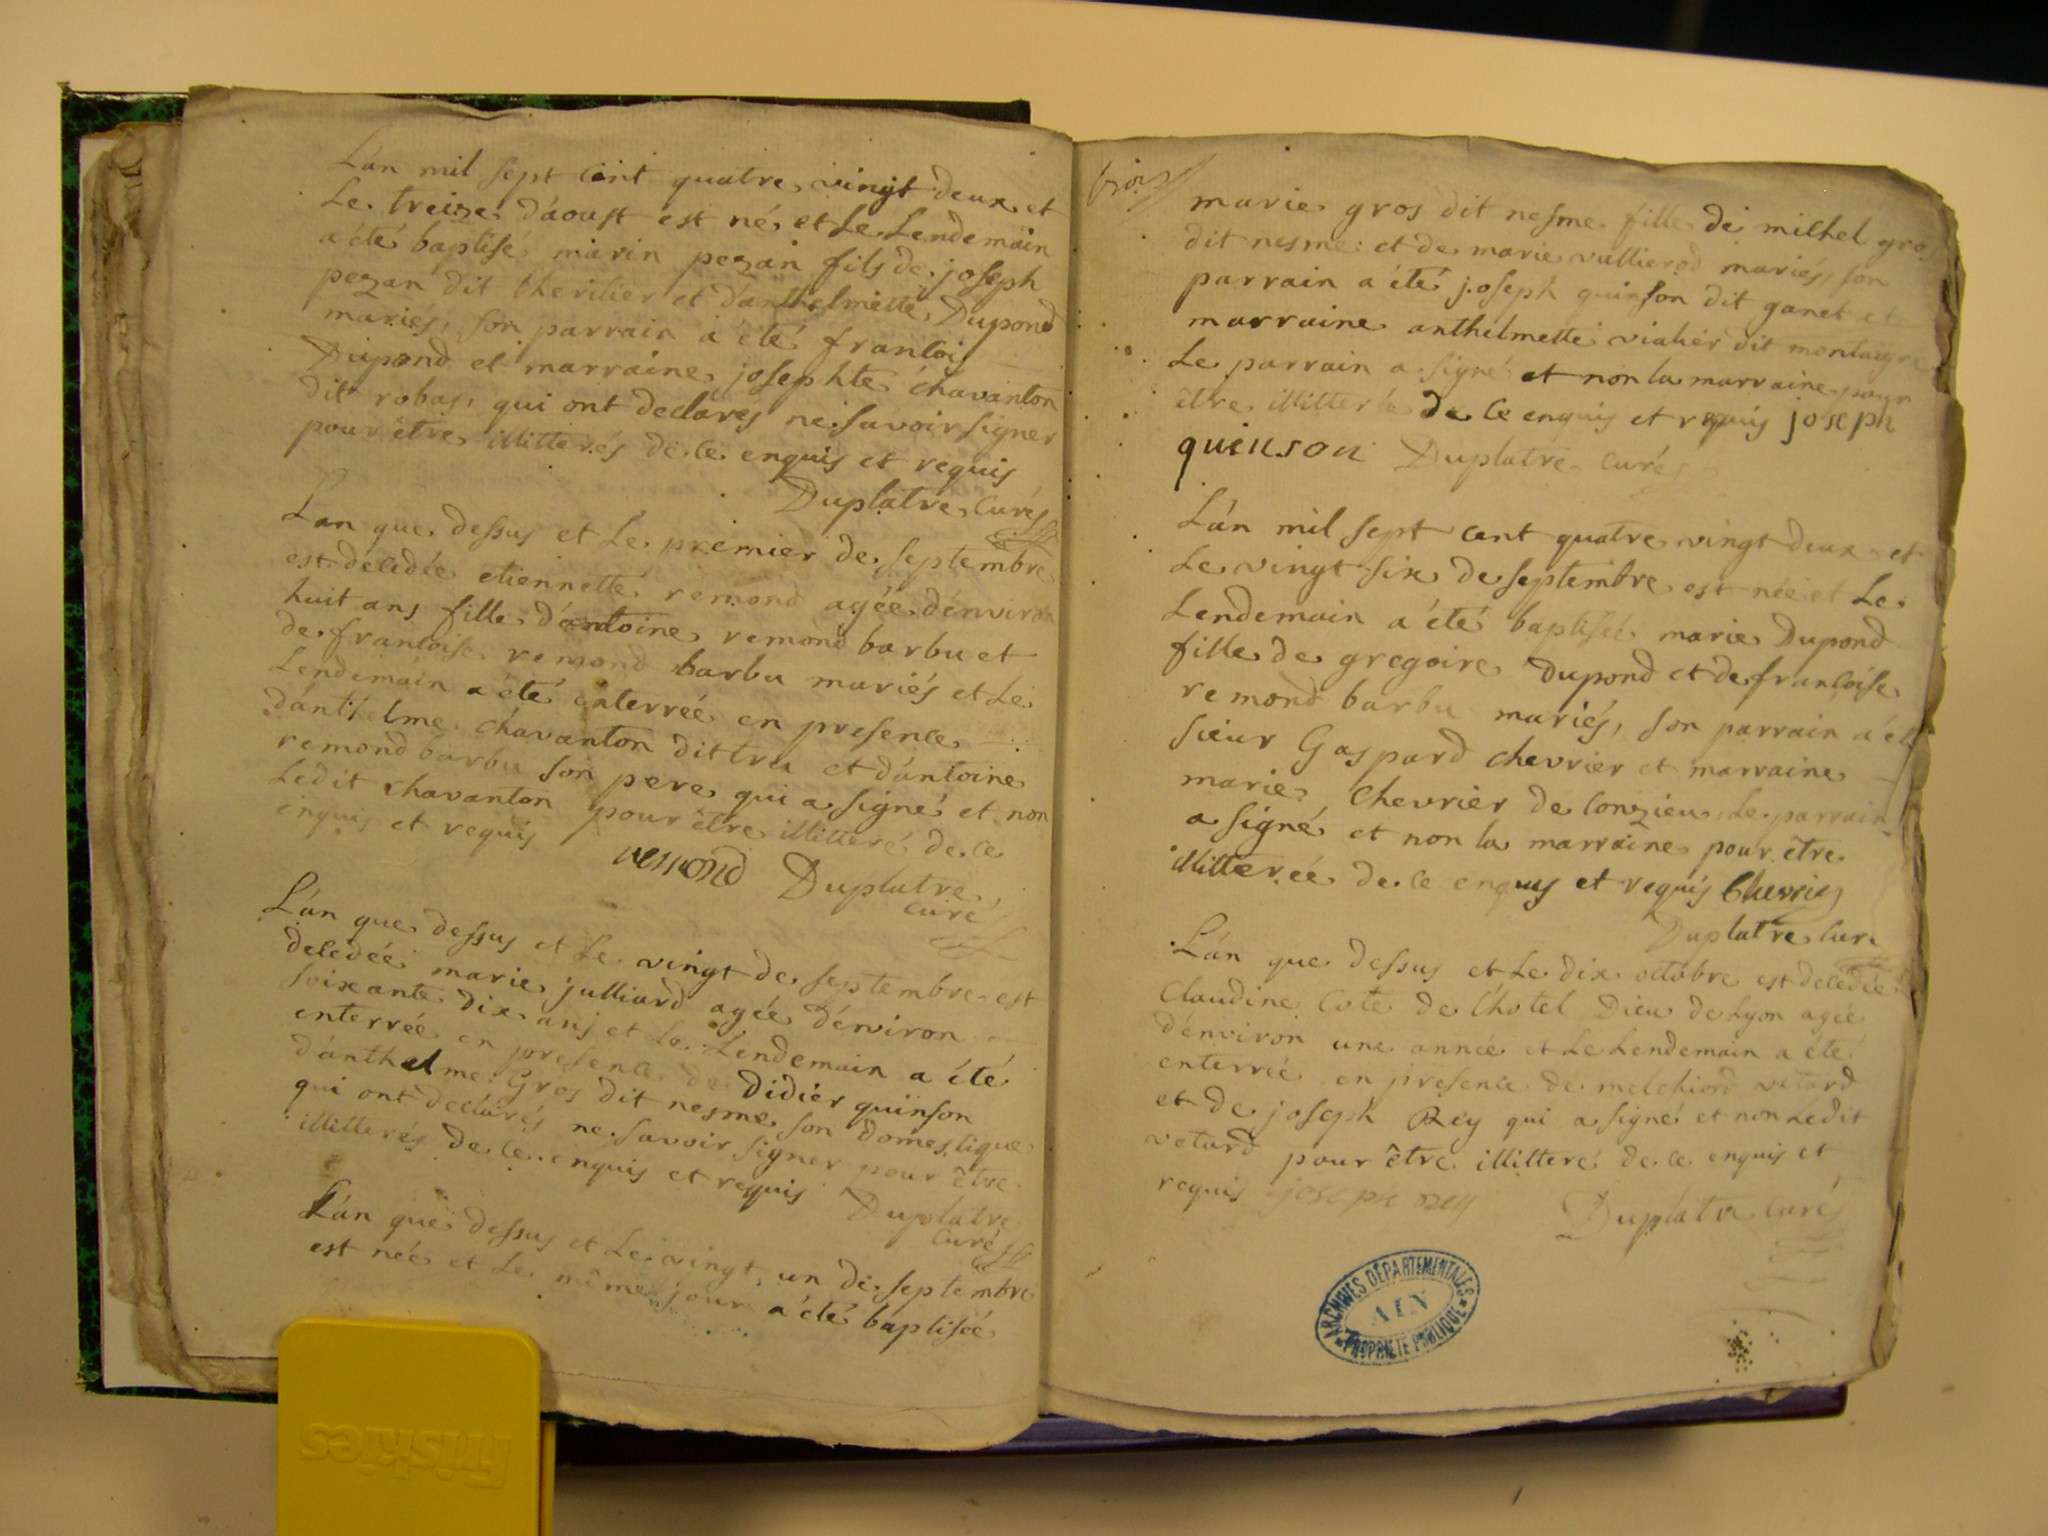 L'an mil sept cent quatre vingt deux et
Le treize d'aoust est né et Le Lendemain
a été baptisé marin pezan fils de joseph
pezan dit et d'anthelmette Dupond
mariés, son parrain a été francois
Dupond et marraine josephte chavanton
dit robas, qui ont declarés ne savoir signer
pour être illitterés de ce enquis et requis
Duplatre Curé
L'an que dessus et Le premier de septembre
est decedée etiennette remond agée d'environ
huit ans fille d'antoine remond barbu et
de francoise remond barbu mariés et Le
Lendemain a été enterrée en presence
d'anthelme chavanton dit tru et d'antoine
remond barbu son pere qui a signé et non
Ledit chavanton pour être illitteré de ce
enquis et requis remond Duplatre
curé
L'an que dessus et Le vingt de septembre est
decedée marie julliard agée d'environ
soixante dix ans et Le Lendemain a été
enterrée en presence de didier quinson
d'anthelme Gros dit nesme son domestique
qui ont declarés ne savoir signer pour être
illitterés de ce enquis et requis Duplatre
curé
L'an que dessus et Le vingt un de septembre
est née et Le même jour a été baptisée
trois
marie gros dit nesme fille de michel gros
dit nesme et de marie vullierod mariés, son
parrain a été joseph quinson dit ganet et
marraine anthelmette dit
Le parrain a signé et non la marraine pour
être illitterée de ce enquis et requis joseph
quinson Duplatre curé
L'an mil sept cent quatre vingt deux et
Le vingt six de septembre est née et Le
Lendemain a été baptisée marie Dupond
fille de gregoire Dupond et de francoise
remond barbu mariés, son parrain a été
sieur Gaspard chevrier et marraine
marie Chevrier de Conzieu, Le parrain
a signé et non la marraine pour être
illitterée de ce enquis et requis Chevrier
Duplatre Curé
L'an que dessus et Le dix octobre est decedée
Claudine Cote de L'hotel Dieu de Lyon agée
d'environ une année et Le Lendemain a été
enterrée en presence de melchiord vetard
et de joseph Rey qui a signé et non Ledit
vetard pour être illitteré de ce enquis et
requis joseph rey Duplatre Curé
ARCHIVES DÉPARTEMENTALES
AIN
PROPRIÉTÉ PUBLIQUE
Friskies